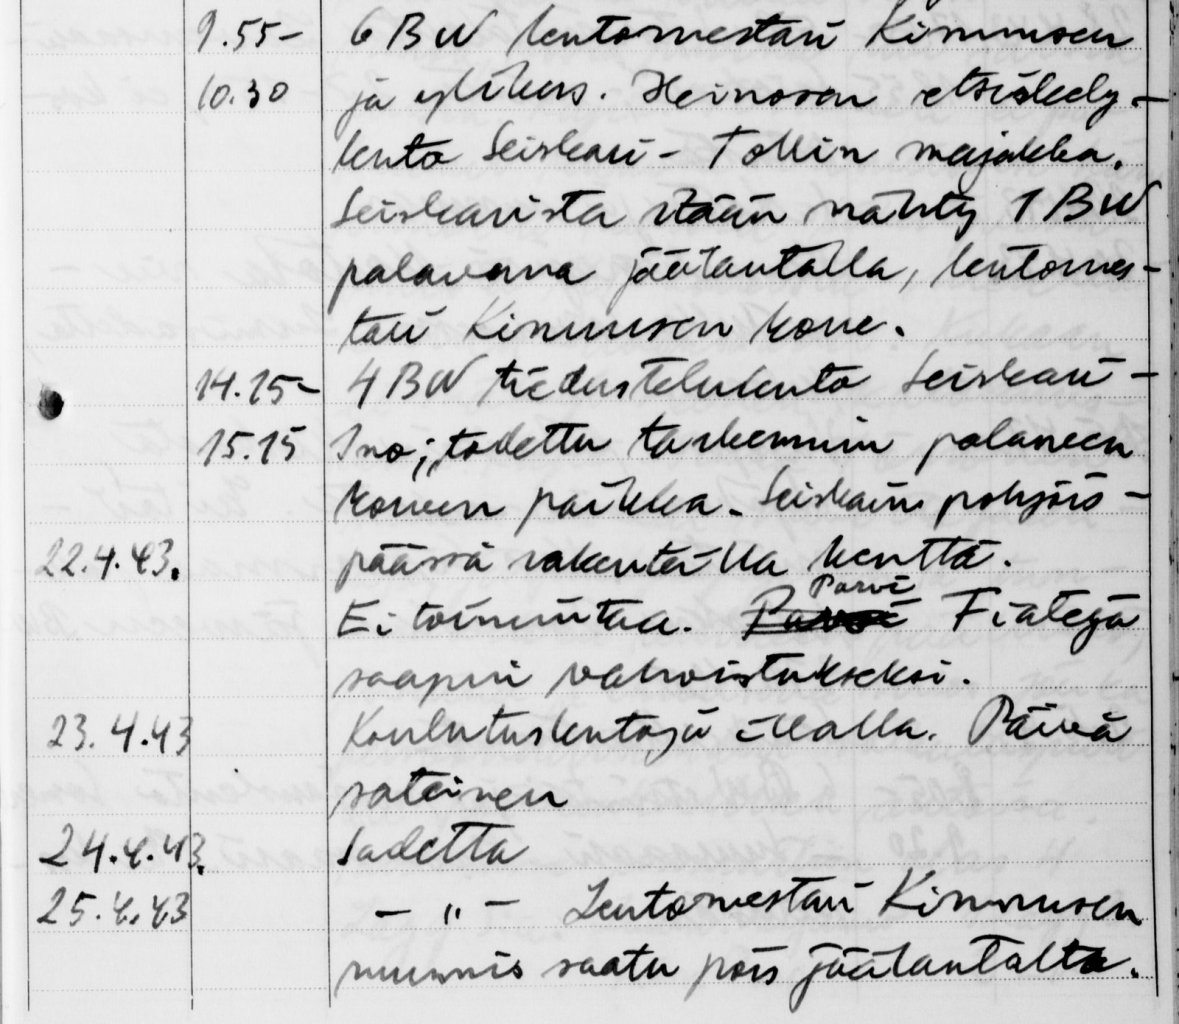 9.55- 6 BW lentomestari Kinnusen
10.30 ja ylikers. Heinosen etsiskely-
lento Seiskari - Tollin majakka.
Seiskarista itään nähty 1 BW
palavana jäälautalla, lentomes-
tari Kinnusen kone.
14.15- 4 BW tiedustelulento Seiskari -
15.15 Ino; todettu tarkemmin palaneen
koneen paikka. Seiskarin pohjois-
22.4.43. päässä rakenteilla kenttä.
Parvi
Ei toimintaa. Fiateja
saapui vahvistukseksi.
23.4.43 Koulutuslentoja illalla. Päivä
sateinen
24.4.43. Sadetta
25.4.43 - " - Lentomestari Kinnusen
ruumis saatu pois jäälautalta.